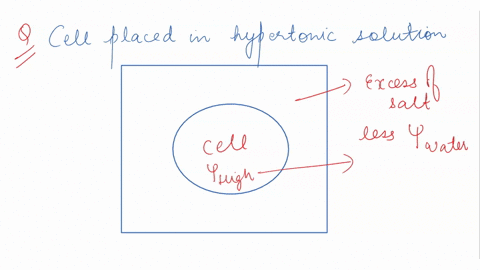 Q Cell placed in hypertonic solution
Excess of
salt
less Ψwater
Cell
ΨHigh